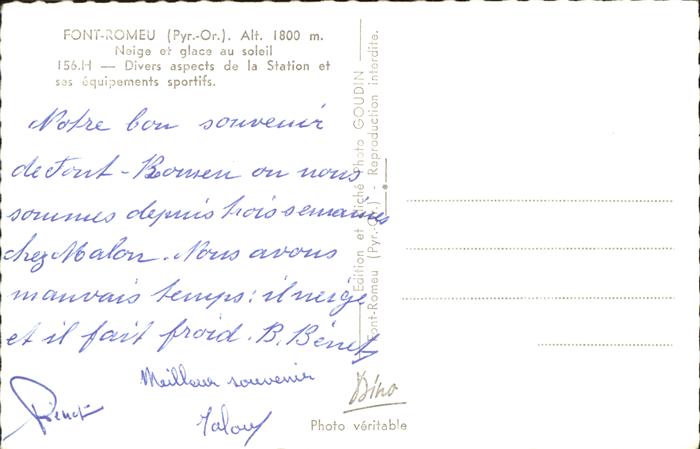 FONT-ROMEU (Pyr.-Or.). Alt. 1800 m.
Neige et glace au soleil
156.H — Divers aspects de la Station et
ses équipements sportifs.
Notre bon souvenir
de Font-Romeu ou nous
sommes depuis trois semaines
chez Malon. Nous avons
mauvais temps: il neige
et il fait froid. B. Bénet
Meilleur souvenir
Bénet
Dino
Photo véritable
Edition et Cliché Photo GOUDIN
Font-Romeu (Pyr.-Or.) - Reproduction interdite.